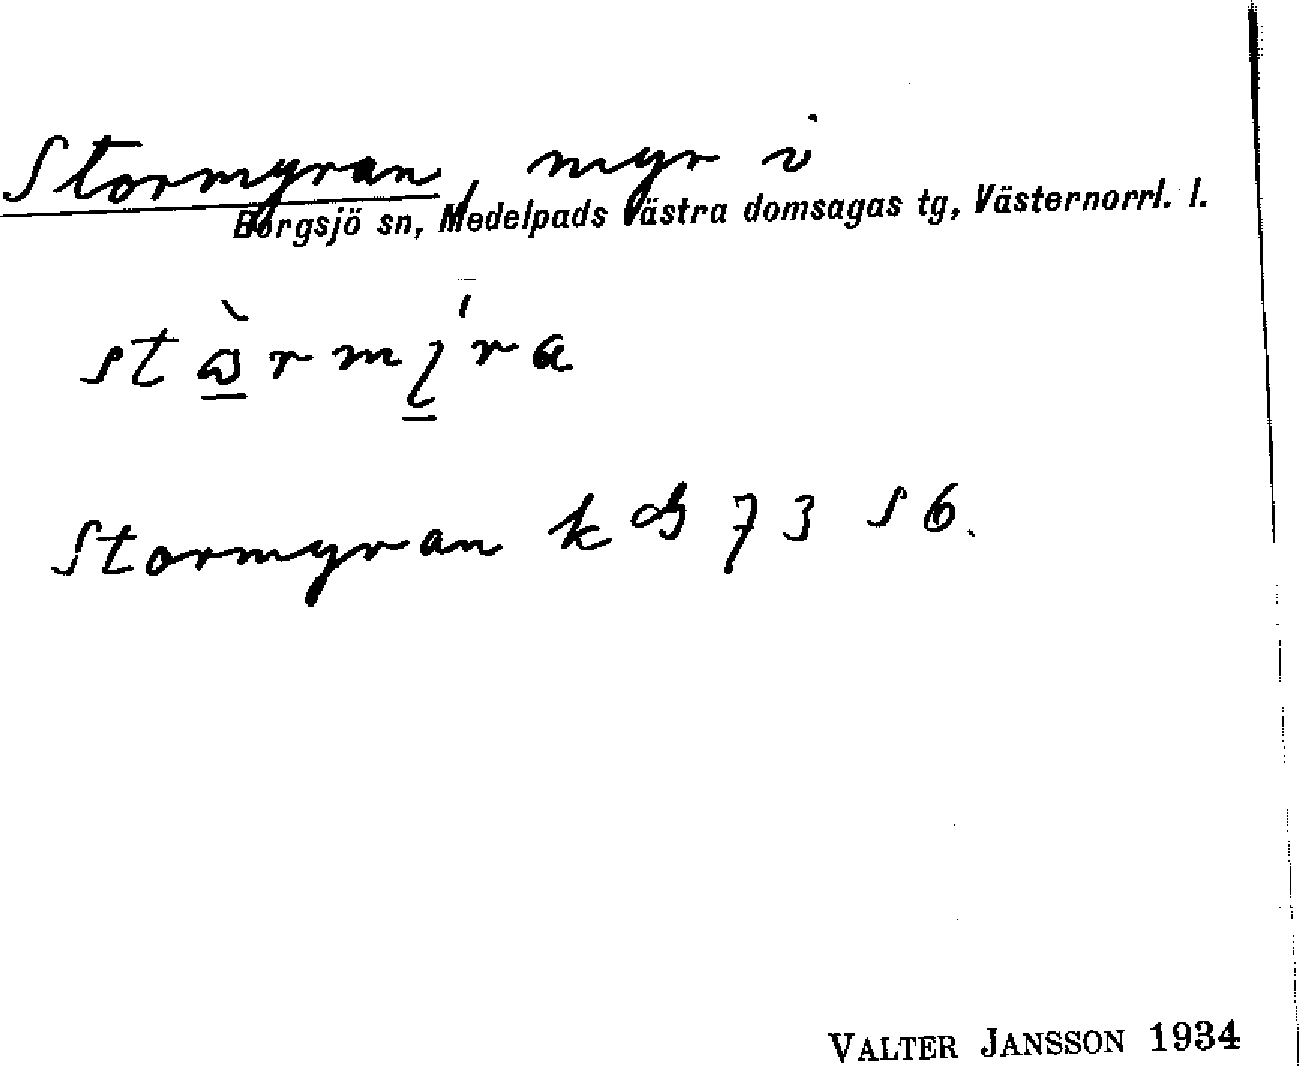 Stormyran, myr i
Borgsjö sn, Medelpads västra domsagas tg, Västernorrl. l.
Stormyran k 73 S 6.
VALTER JANSSON 1934